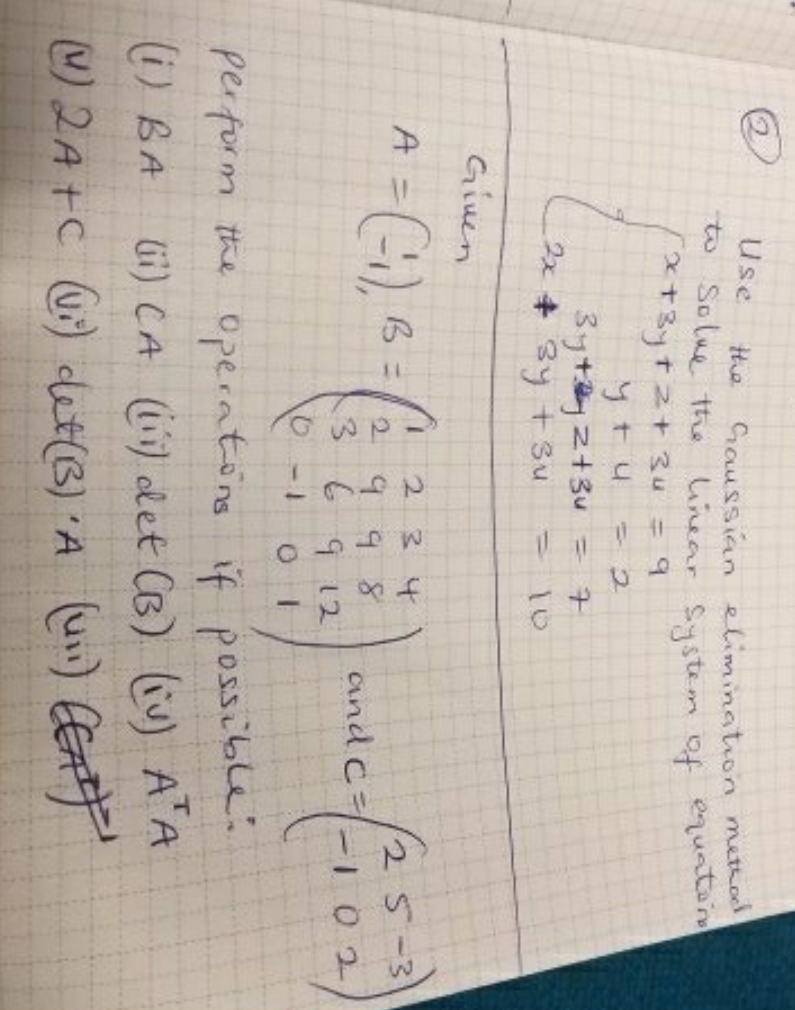 ②
Use the Gaussian elimination method
to Solve the linear System of equations
x + 3y + z + 3u = 9
y + u = 2
3y + z + 3u = 7
2x + 3y + 3u = 10
Given
A = (1
-1), B = (1 2 3 4
2 9 9 8
3 6 9 12
0 -1 0 1) and C = (2 5 -3
-1 0 2)
perform the operations if possible:
(i) BA (ii) CA (iii) det(B) (iv) AᵀA
(v) 2A+C (vi) det(B)·A (viii)